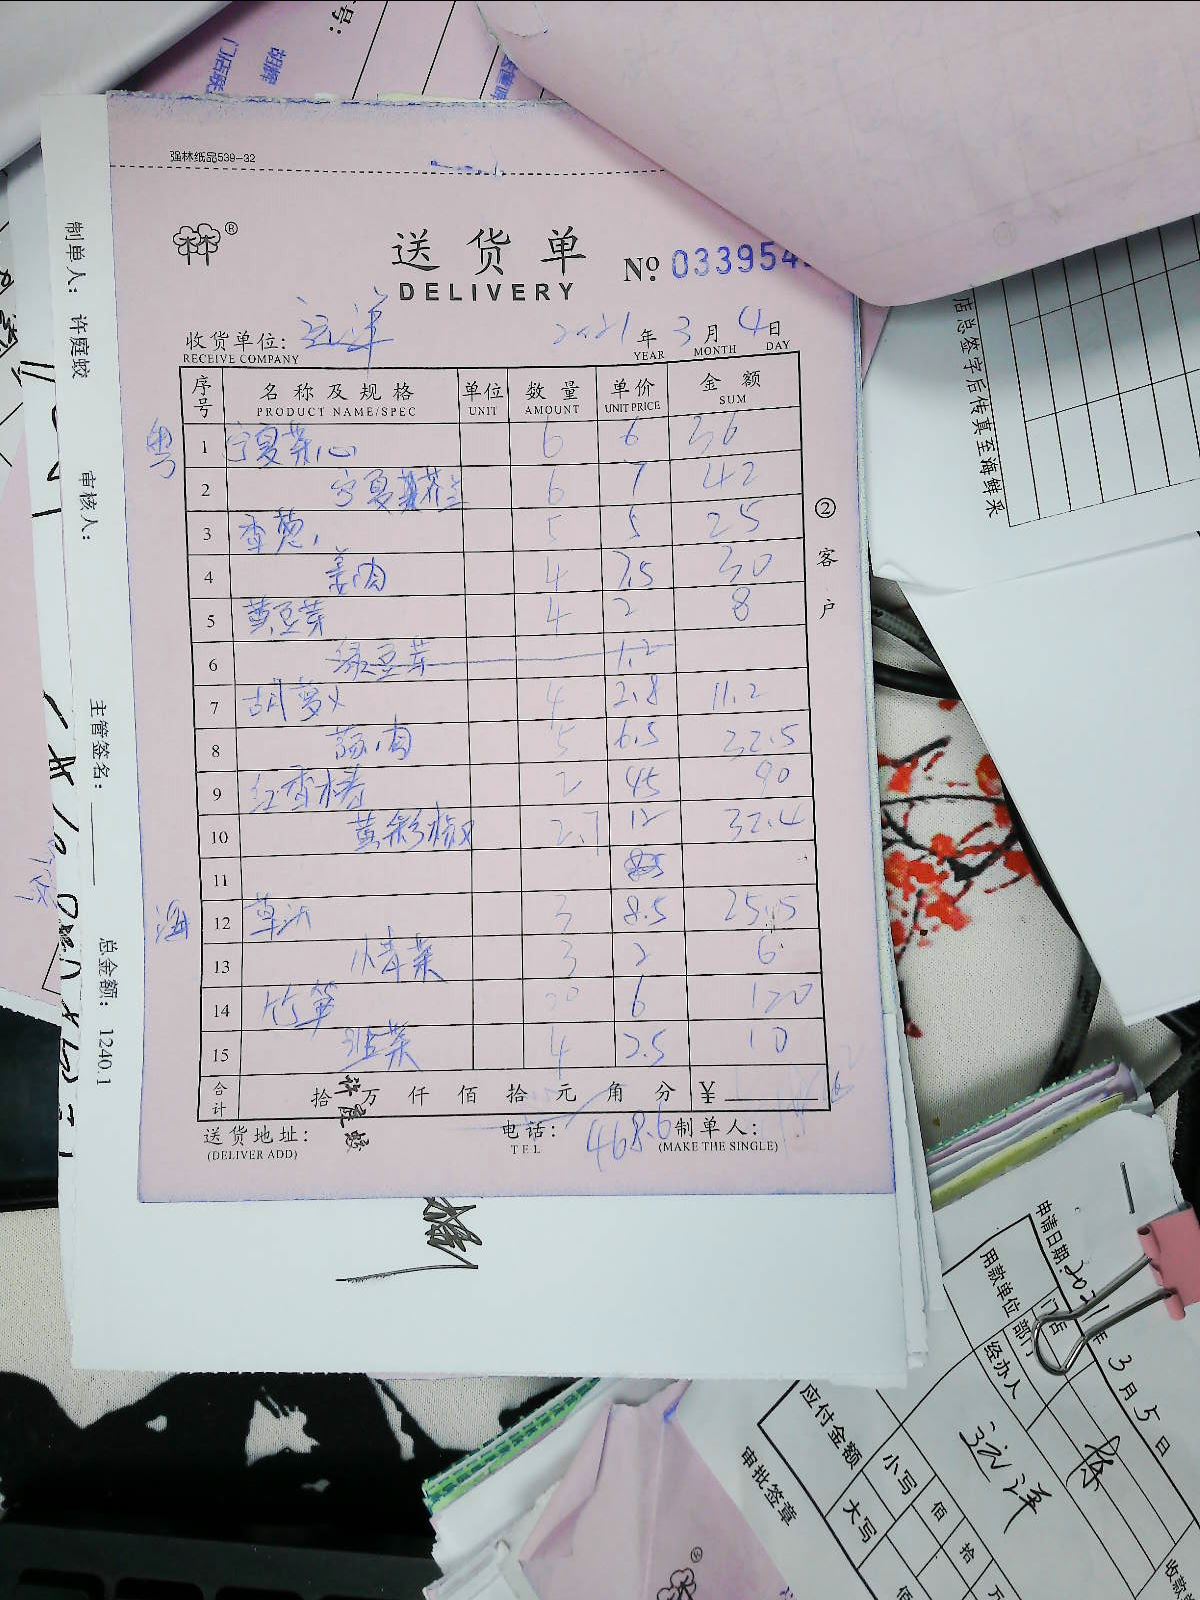 强林纸品539-32
送货单
DELIVERY
No 033954
收货单位: 远洋 2021年3月4日
RECEIVE COMPANY YEAR MONTH DAY
序号 名称及规格 单位 数量 单价 金额
PRODUCT NAME/SPEC UNIT AMOUNT UNIT PRICE SUM
粤 1 宁夏菜心 6 6 36
2 宁夏芥兰 6 7 42
3 香葱 5 5 25
4 姜肉 4 7.5 30
5 黄豆芽 4 2 8
6 绿豆芽 1.2
7 胡萝卜 4 2.8 11.2
8 蒜肉 5 6.5 32.5
9 红香椿 2 45 90
10 黄彩椒 2.7 12 32.4
11
海 12 草 3 8.5 25.5
13 青菜 3 2 6
14 竹笋 20 6 120
15 韭菜 4 2.5 10
合计 拾 万 仟 佰 拾 元 角 分 ¥
468.6
送货地址: 电话: 制单人:
(DELIVER ADD) TEL (MAKE THE SINGLE)
许庭蛟
②客户
制单人: 许庭蛟
审核人:
主管签名:
总金额: 1240.1
店总签字后传真至海鲜采
号:
门店联
申请日期:2021年3月5日
用款单位 门店 部门
经办人
应付金额 小写 大写
佰 拾 万
审批签章
收款